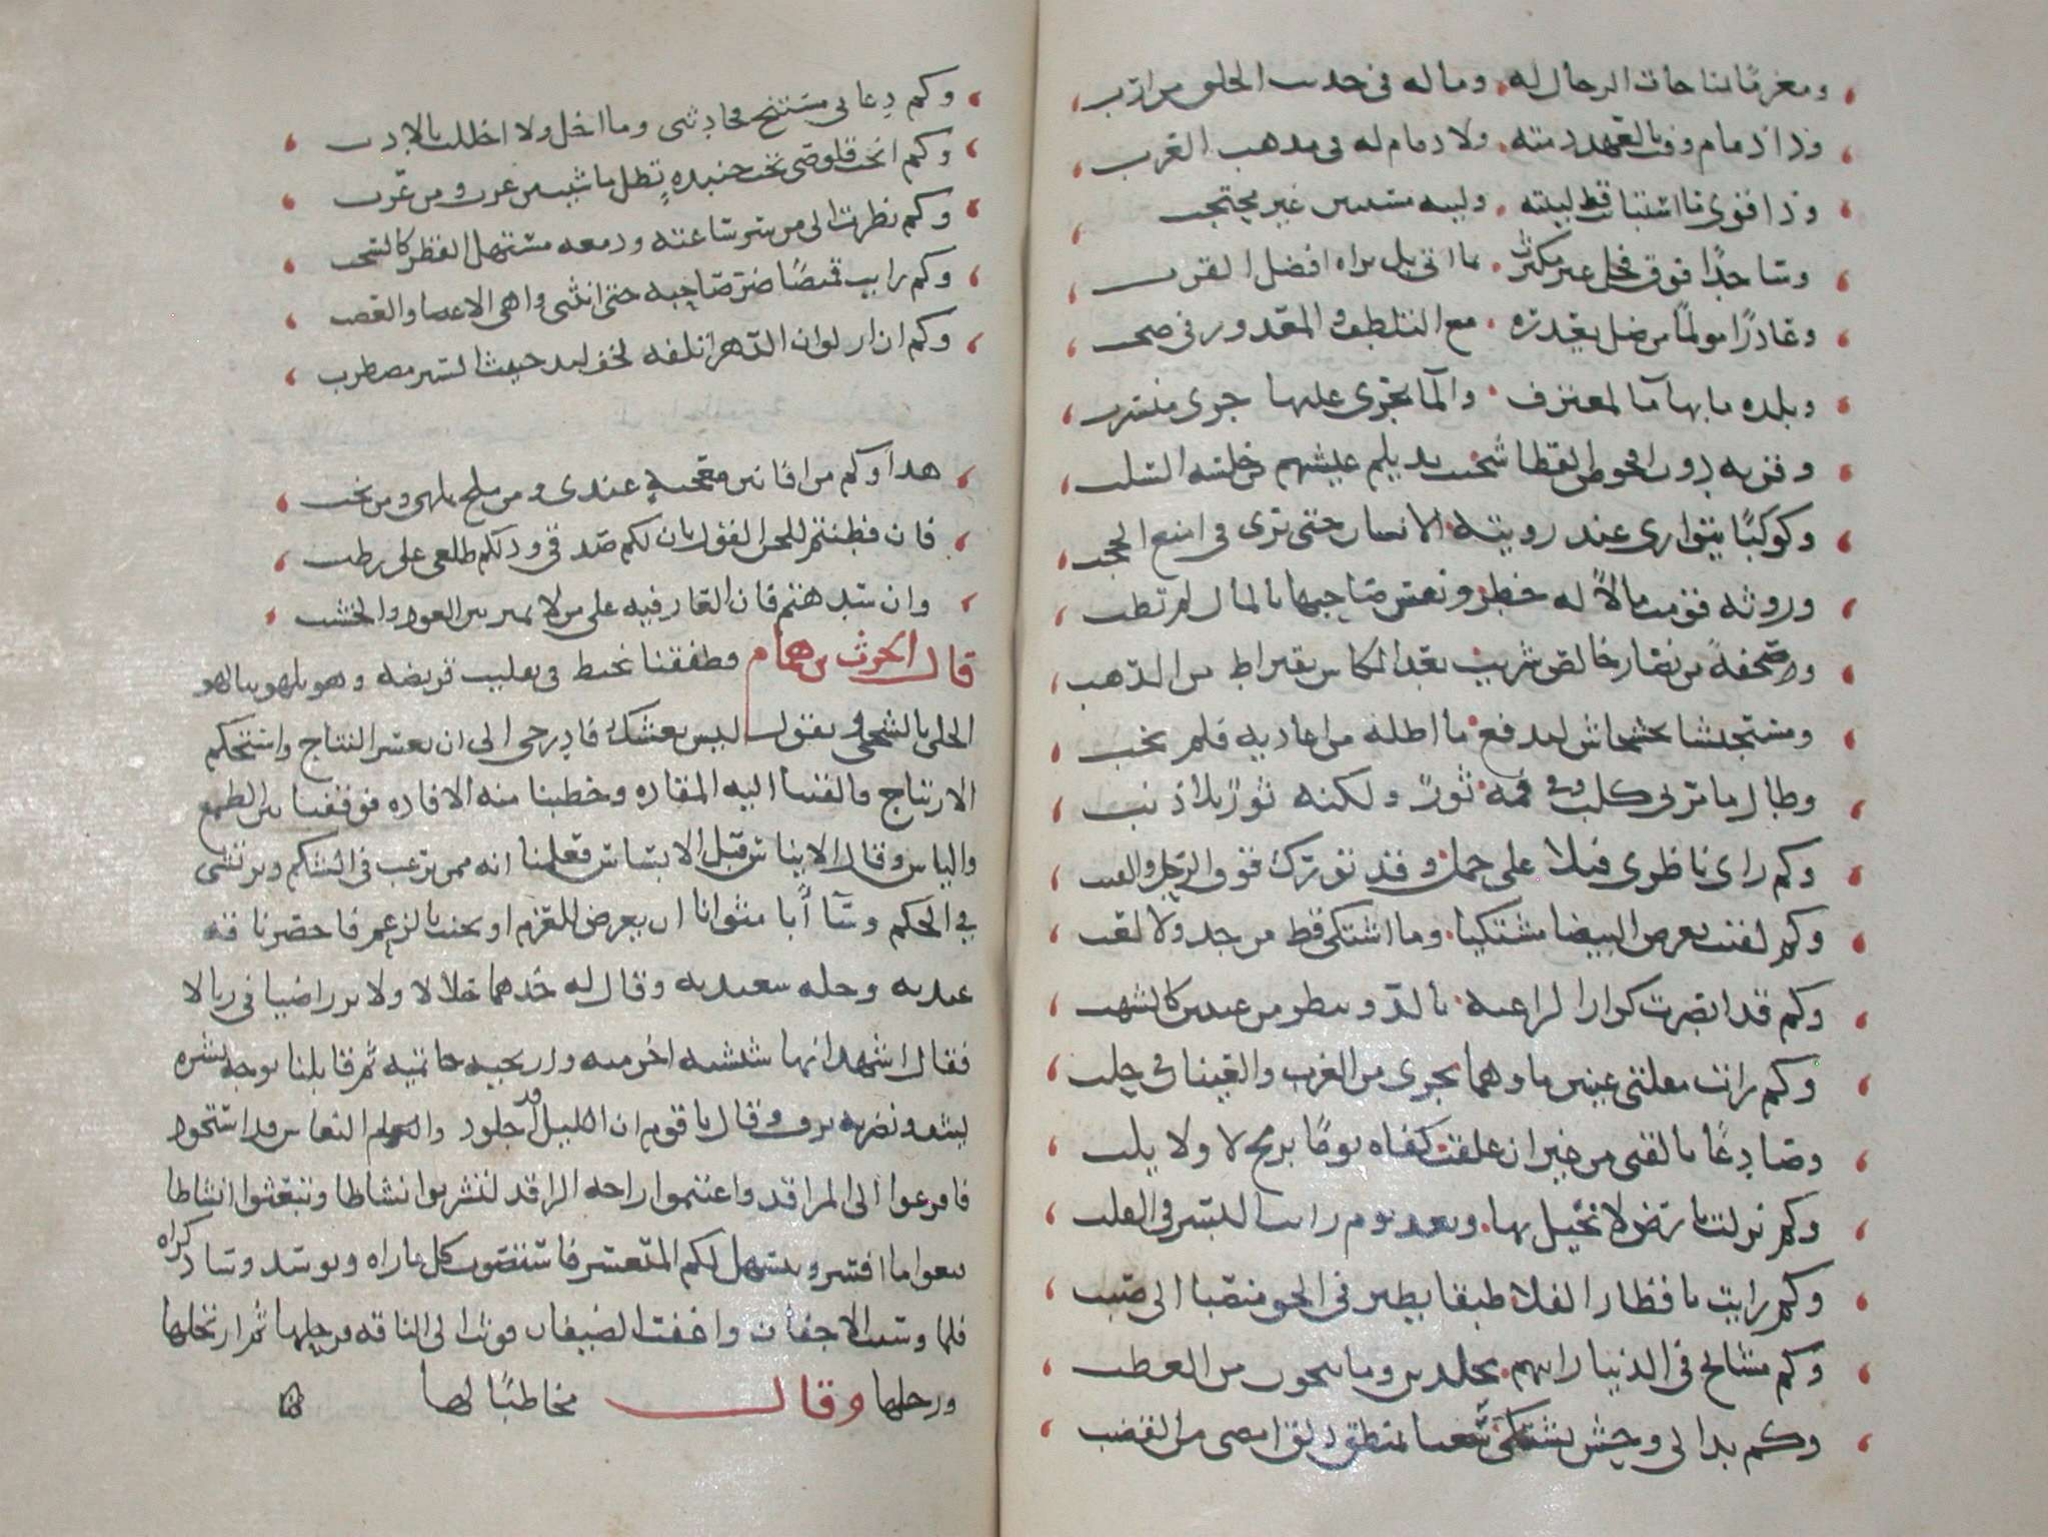 ومغرما بمناجاة الرجال له وما له في حديث الخلق من ارب
وذا ذمام وفت بالعهد ذمته ولا ذمام له في مذهب العرب
وذا قوى ما استبانت قط لينته ولينه مستبين غير محتجب
وساجدا فوق فحل غير مكترث بما اتى بل يراه افضل القرب
وعاذرا مولما من ظل يعذره مع التلطف والمعذور في صخب
وبلدة ما بها ماء لمغترف والما يجري عليها جري منسرب
وقرية دون افحوص القطا شحنت بديلم عيشهم من خلسة السلب
وكوكبا يتوارى عند رويته الانسان حتى يرى في امنع الحجب
وروثة قومت مالا له خطر ونفس صاحبها بالمال لم تطب
وصحفة من نضار خالص شريت بعد المكاس بقيراط من الذهب
ومستجيشا بخشخاش ليدفع ما اظله من اعاديه فلم يخب
وطال ما مر بي كلب وفي فمه ثور ولكنه ثور بلا ذنب
وكم راى ناظري فيلا على جمل وقد تورك فوق الرحل والقتب
وكم لقيت بعرض البيد مشتكيا وما اشتكى قط من جد ولا لعب
وكم قد ابصرت كرازا لراعية بالدو ينظر من عينين كالشهب
وكم رات مقلتي عينين ماوهما يجري من الغرب والعينان في حلب
وصادعا بالقنى من غير ان علقت كفاه يوما برمح لا ولا يلب
وكم نزلت بارض لا نخيل بها وبعد يوم رايت البسر في القلب
وكم رايت باقطار الفلا طبقا يطير في الجو منصبا الى صبب
وكم مشايخ في الدنيا رايتهم مخلدين ومن ينجو من العطب
وكم بدا لي وحش يشتكي سغبا بمنطق ذلق امضى من القضب
وكم دعاني مستنج فحادثني وما اخل ولا اخللت بالادب
وكم انخت قلوصي تحت جنبذة تظل ما شيت من عرب ومن عرب
وكم نظرت الى من سر ساعته ودمعه مستهل القطر كالسحب
وكم رايت قميصا ضر صاحبه حتى انثنى واهي الاعضا والعصب
وكم ازار لو ان الدهر اتلفه لخف لبد حثيث السير مضطرب
هذا وكم من افانين معجبة عندي ومن ملح تلهي ومن نخب
فان فطنتم للحن القول بان لكم صدقي ودلكم طلعي على رطب
وان شدهتم فان العار فيه على من لا يميز بين العود والخشب
قال الحرث بن همام فطفقنا نخبط في تقليب قريضه وهو يلهو بنا لهو
الخلي بالشجي ويقول ليس بعشك فادرجي الى ان تعسر النتاج واستحكم
الارتتاج فالقينا اليه المقادة وخطبنا منه الافادة فوقفنا بين الطمع
والياس وقال الايناس قبل الابساس فعلمنا انه ممن يرغب في الشكم ويرتشي
في الحكم وساء ابا مثوانا ان يعرض للغرم او يخيب بالزعم فاحضر ناقة
عيدية وحلة سعيدية وقال له خذهما حلالا ولا ترزا ضيافي زبالا
فقال اشهد انها شنشنة اخزمية واريحية حاتمية ثم قابلنا بوجه بشره
يشف ونضرة ترف وقال يا قوم ان الليل قد اجلوذ والنعاس قد استحوذ
فافزعوا الى المراقد واغتنموا راحة الراقد لتشربوا نشاطا وتبعثوا نشاطا
فتعوا ما افسر ويتسهل لكم المتعسر فاستصوب كل ما راه وتوسد وساد كراه
فلما وسنت الاجفان واغفت الضيفان وثب الى الناقة فرحلها ثم ارتحلها
ورحلها وقال مخاطبا لها